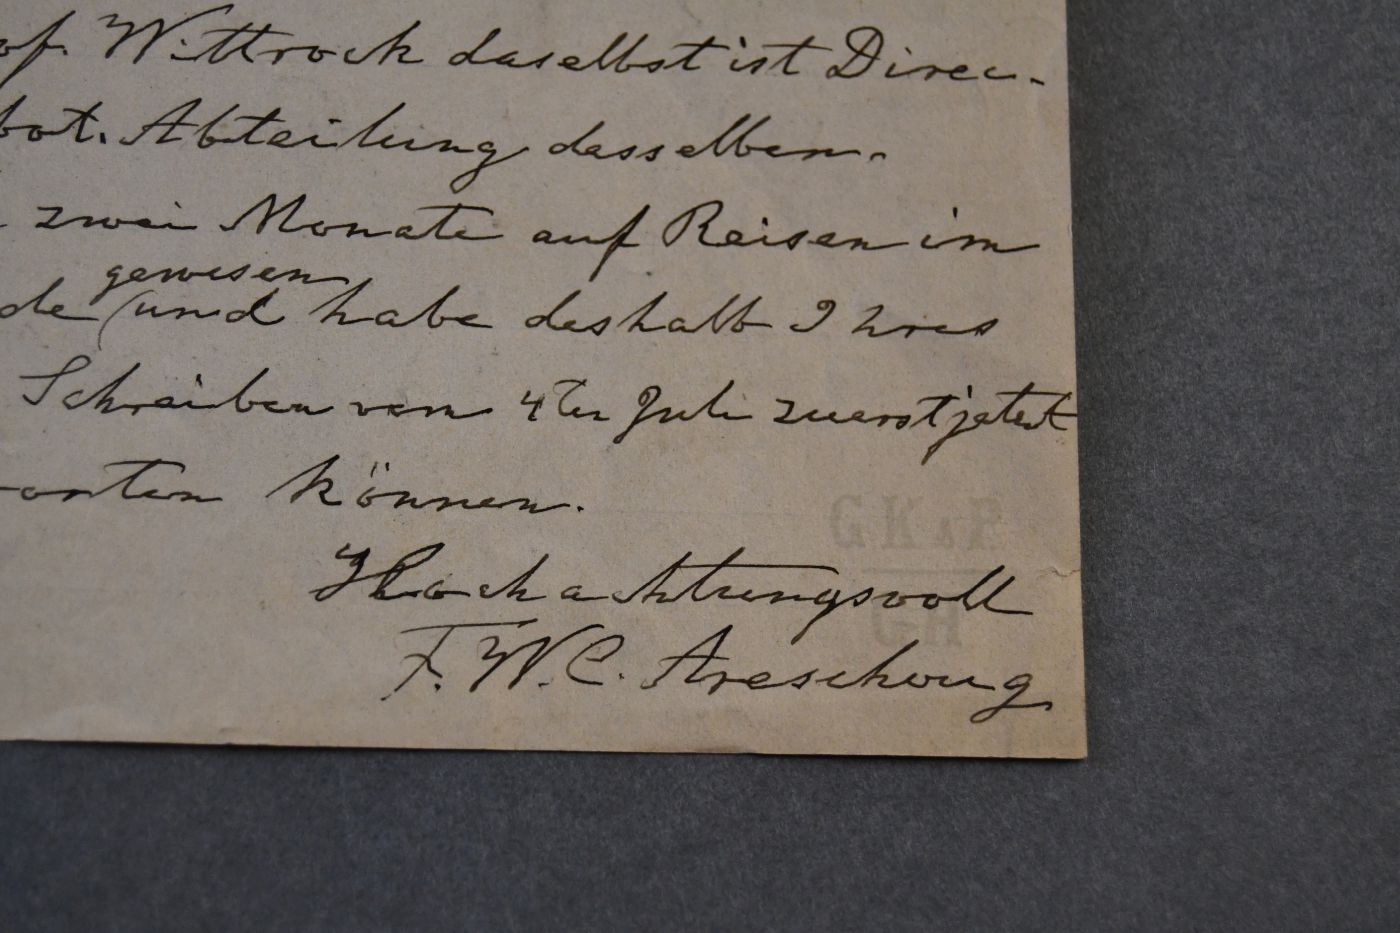 of. Wittrock daselbst ist Direc-
bot. Abteilung dasselben.
zwei Monate auf Reisen im
gewesen
de und habe deshalb Ihres
Schreiben vom 4ten Juli zuerst jetzt
orten können.
Hochachtungsvoll
F. W. C. Areschoug